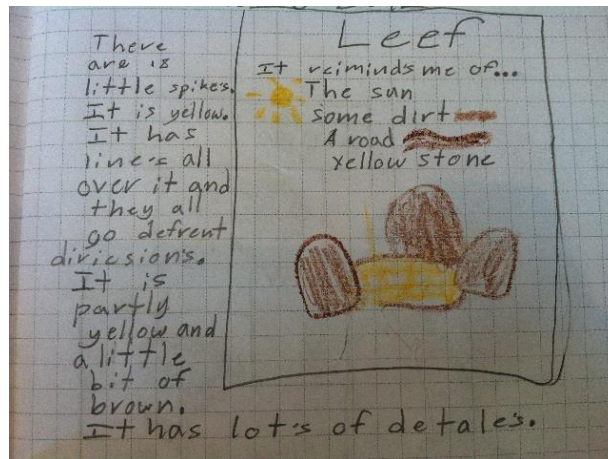 There
are 18
little spikes.
It is yellow.
It has
line's all
over it and
they all
go defrent
diricsion's.
It is
partly
yellow and
a little
bit of
brown.
It has lot's of detale's.
Leef
It reiminds me of...
The sun
some dirt
A road
yellow stone